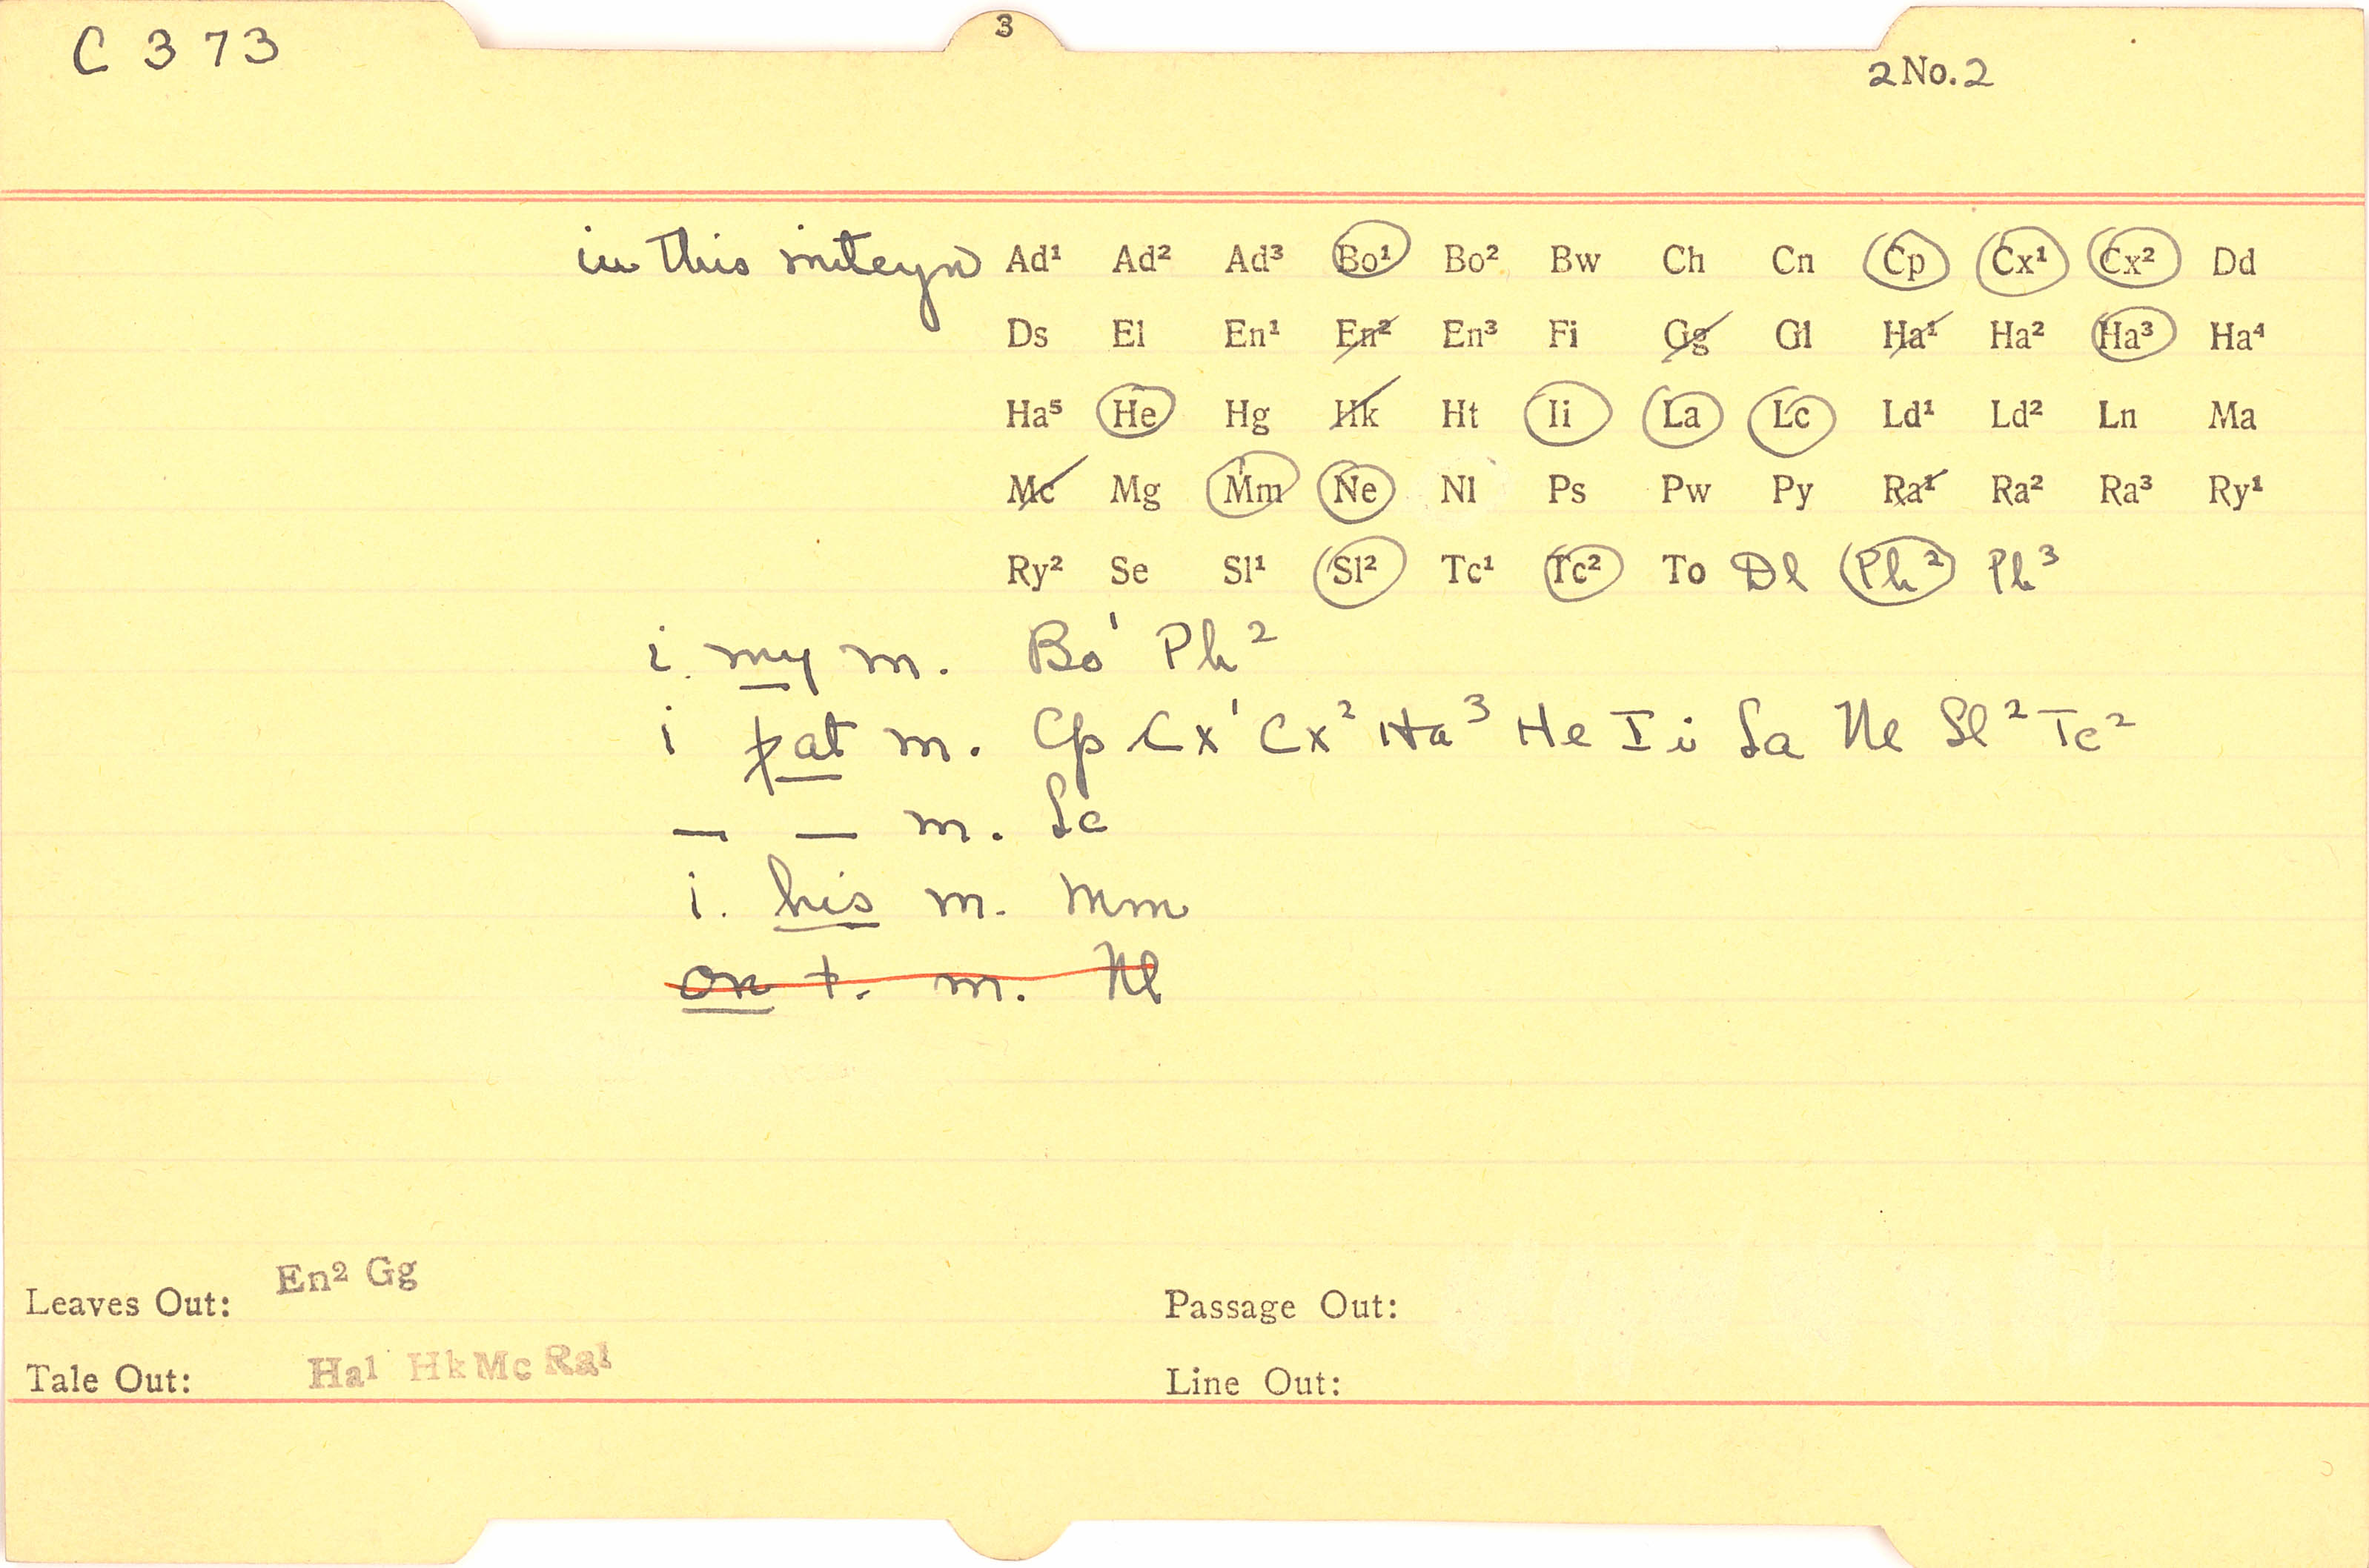 3
C 373
2 No. 2
in this miteyn Ad¹ Ad² Ad³ Bo¹ Bo² Bw Ch Cn Cp Cx¹ Cx² Dd
Ds El En¹ En² En³ Fi Gg Gl Ha¹ Ha² Ha³ Ha⁴
Ha⁵ He Hg Hk Ht Ii La Lc Ld¹ Ld² Ln Ma
Mc Mg Mm Ne Nl Ps Pw Py Ra¹ Ra² Ra³ Ry¹
Ry² Se Sl¹ Sl² Tc¹ Tc² To Dl Ph² Ph³
i. my m. Bo¹ Ph²
i þat m. Cp Cx¹ Cx² Ha³ He Ii La Ne Sl² Tc²
— — m. Lc
i. his m. Mm
on t. m. Nl
Leaves Out: En² Gg
Passage Out:
Tale Out: Ha1 Hk Mc Ra¹
Line Out: